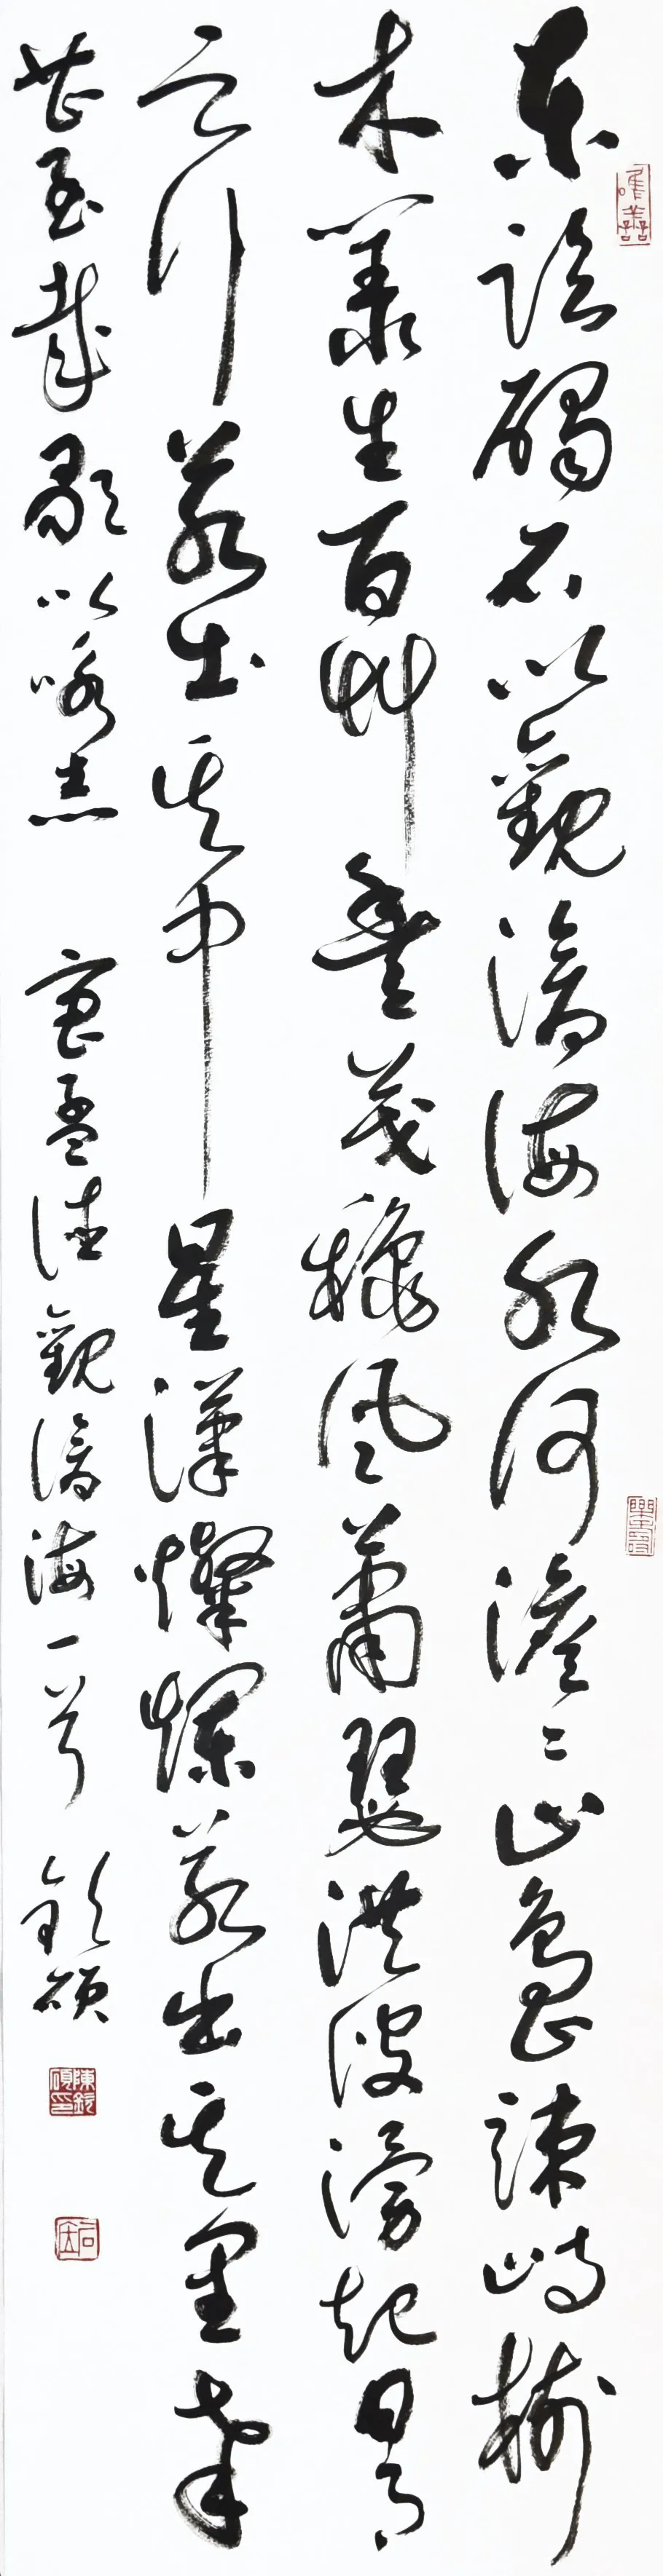 東臨碣石以觀滄海水何澹〻山島竦峙樹
木叢生百草豐茂穐風蕭瑟洪波湧起日月
之行若出其中星漢燦爛若出其里幸
甚至哉歌以詠志 曹孟德觀滄海一首 欽碩
唯善
陳欽碩印